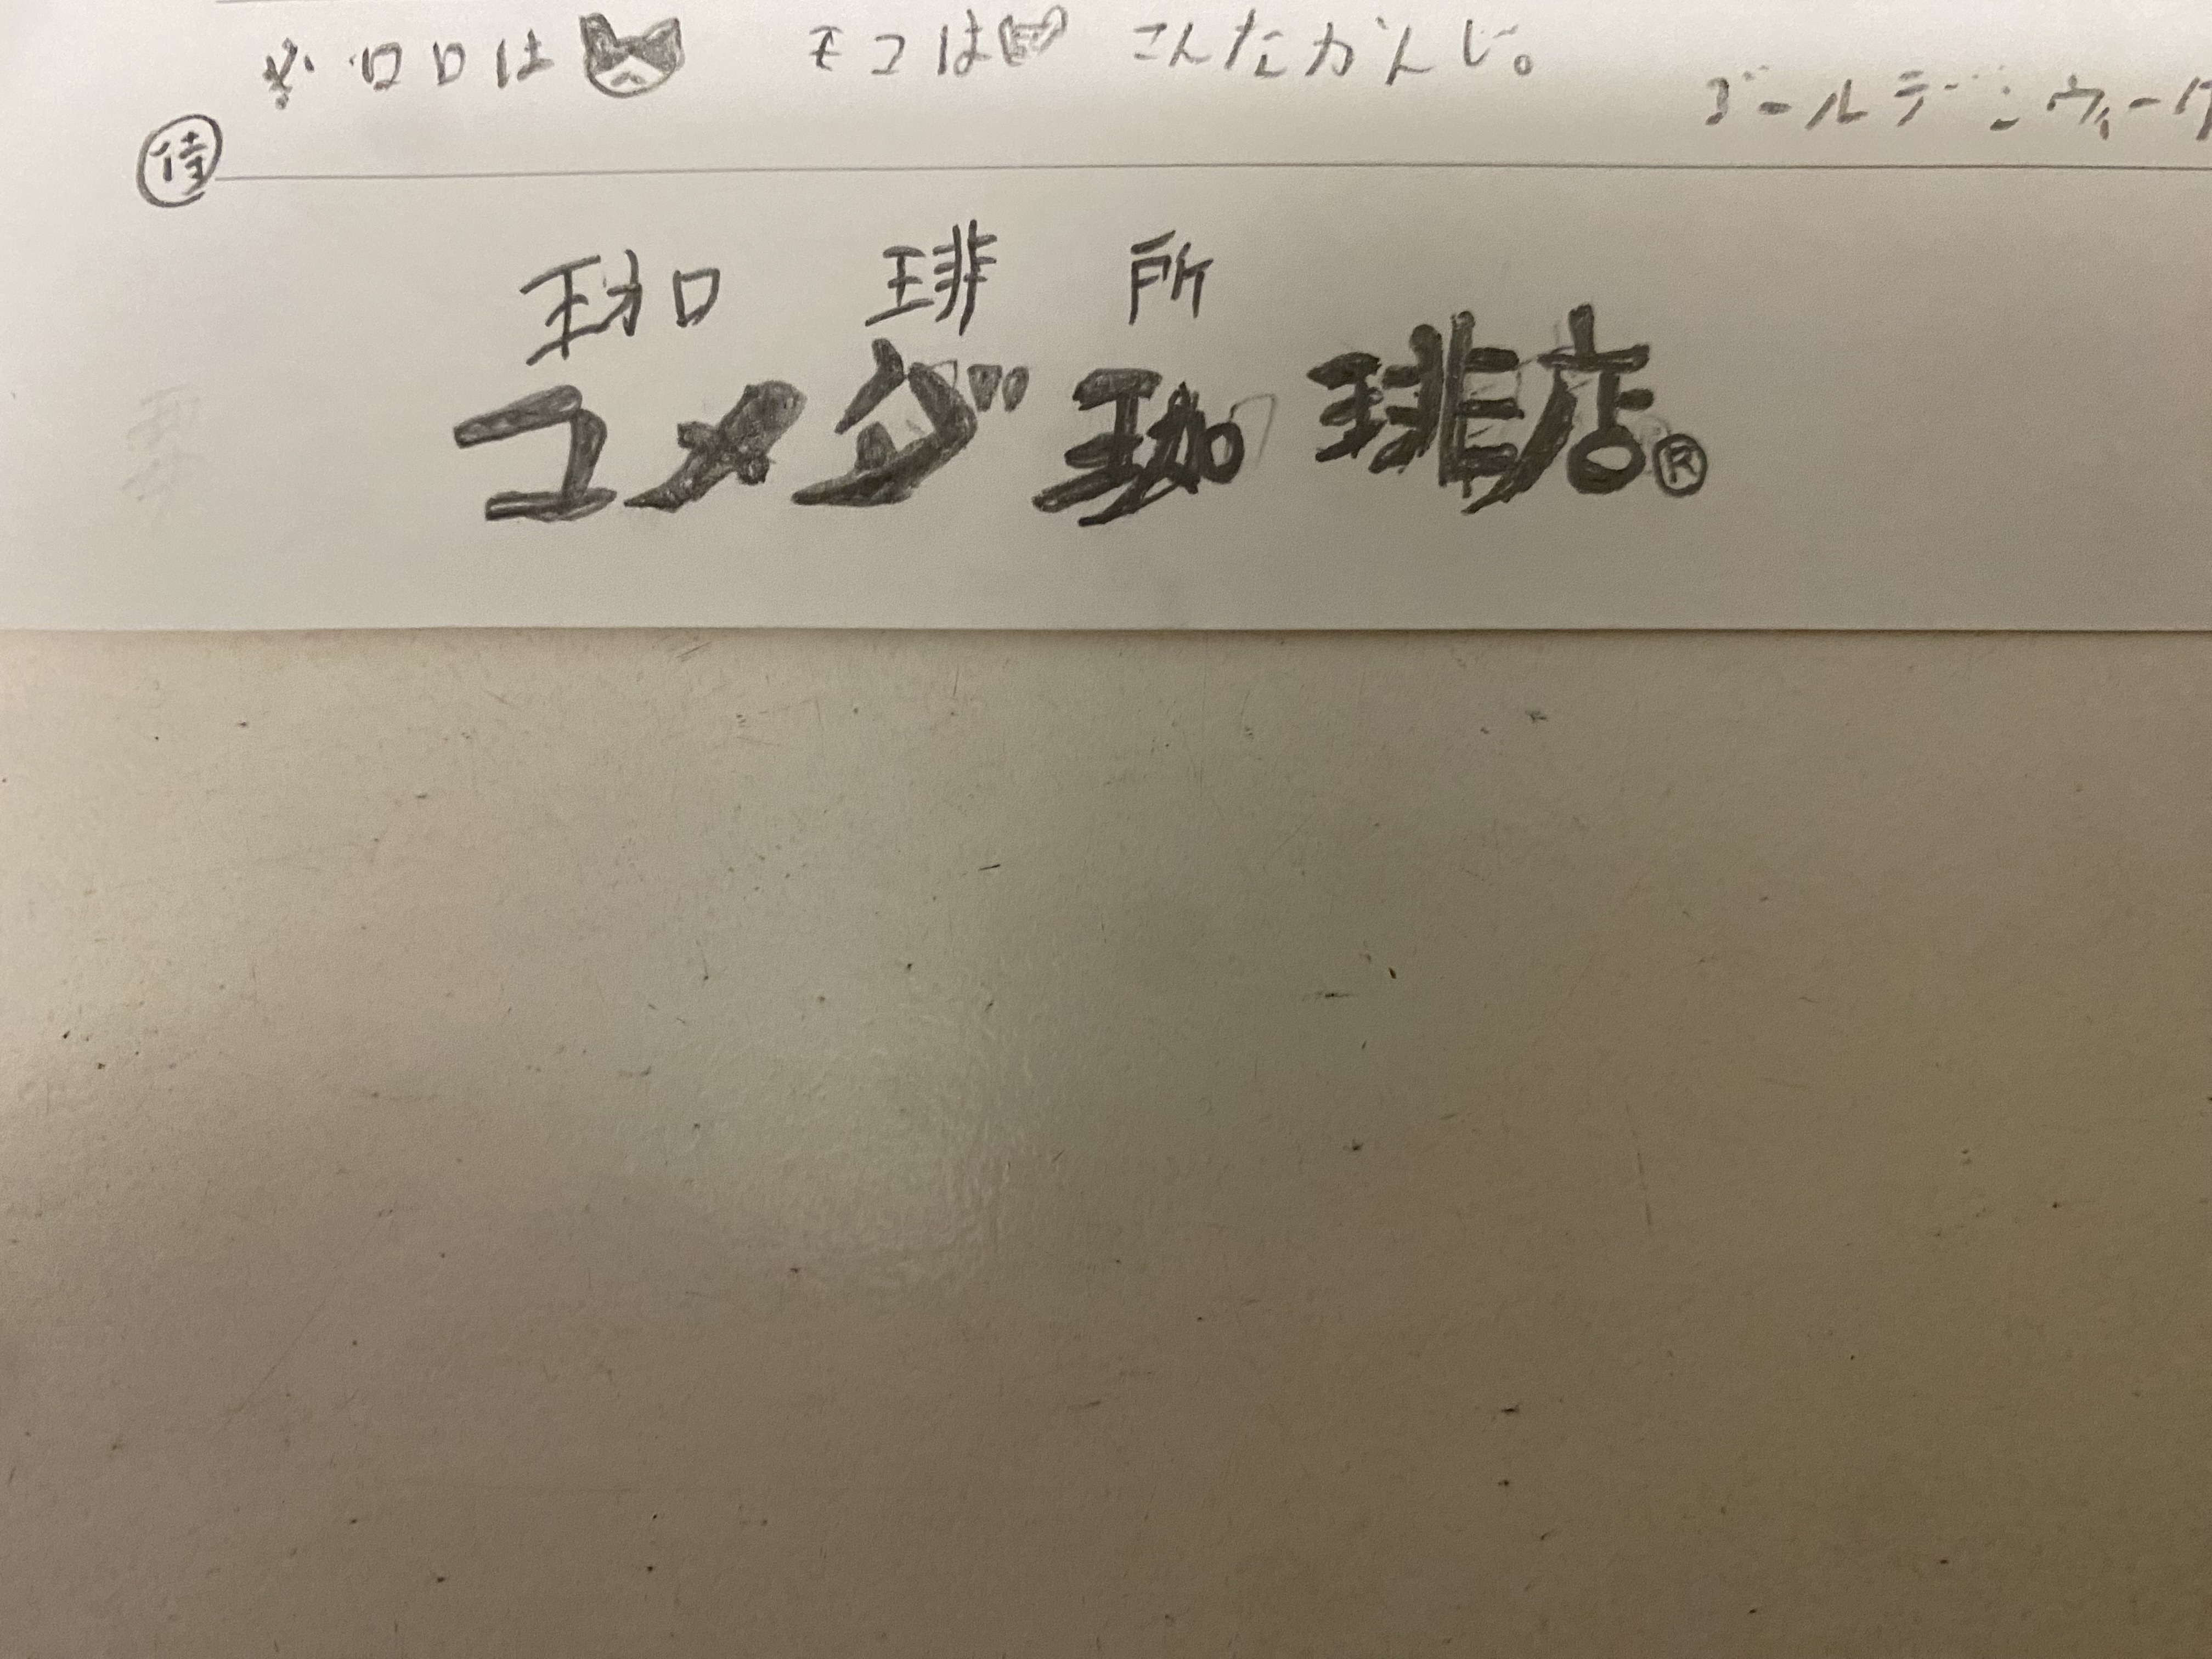 ※ロロは モコは こんなかんじ。
ゴールデンウィーク
侍
珈琲所
コメダ珈琲店®